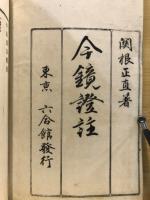 関根正直著
今鏡證註
東京 六合館發行